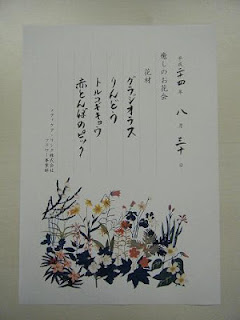 平成二十四年 八月 三十日
癒しのお花会
花材
グラジオラス
りんどう
トルコギキョウ
赤とんぼのピック